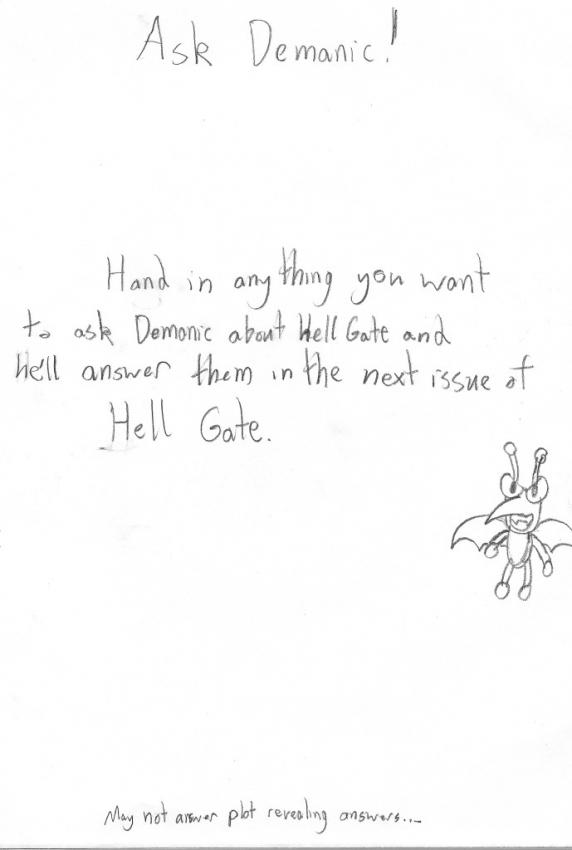 Ask Demanic!
Hand in anything you want
to ask Demonic about Hell Gate and
he'll answer them in the next issue of
Hell Gate.
May not answer plot revealing answers...